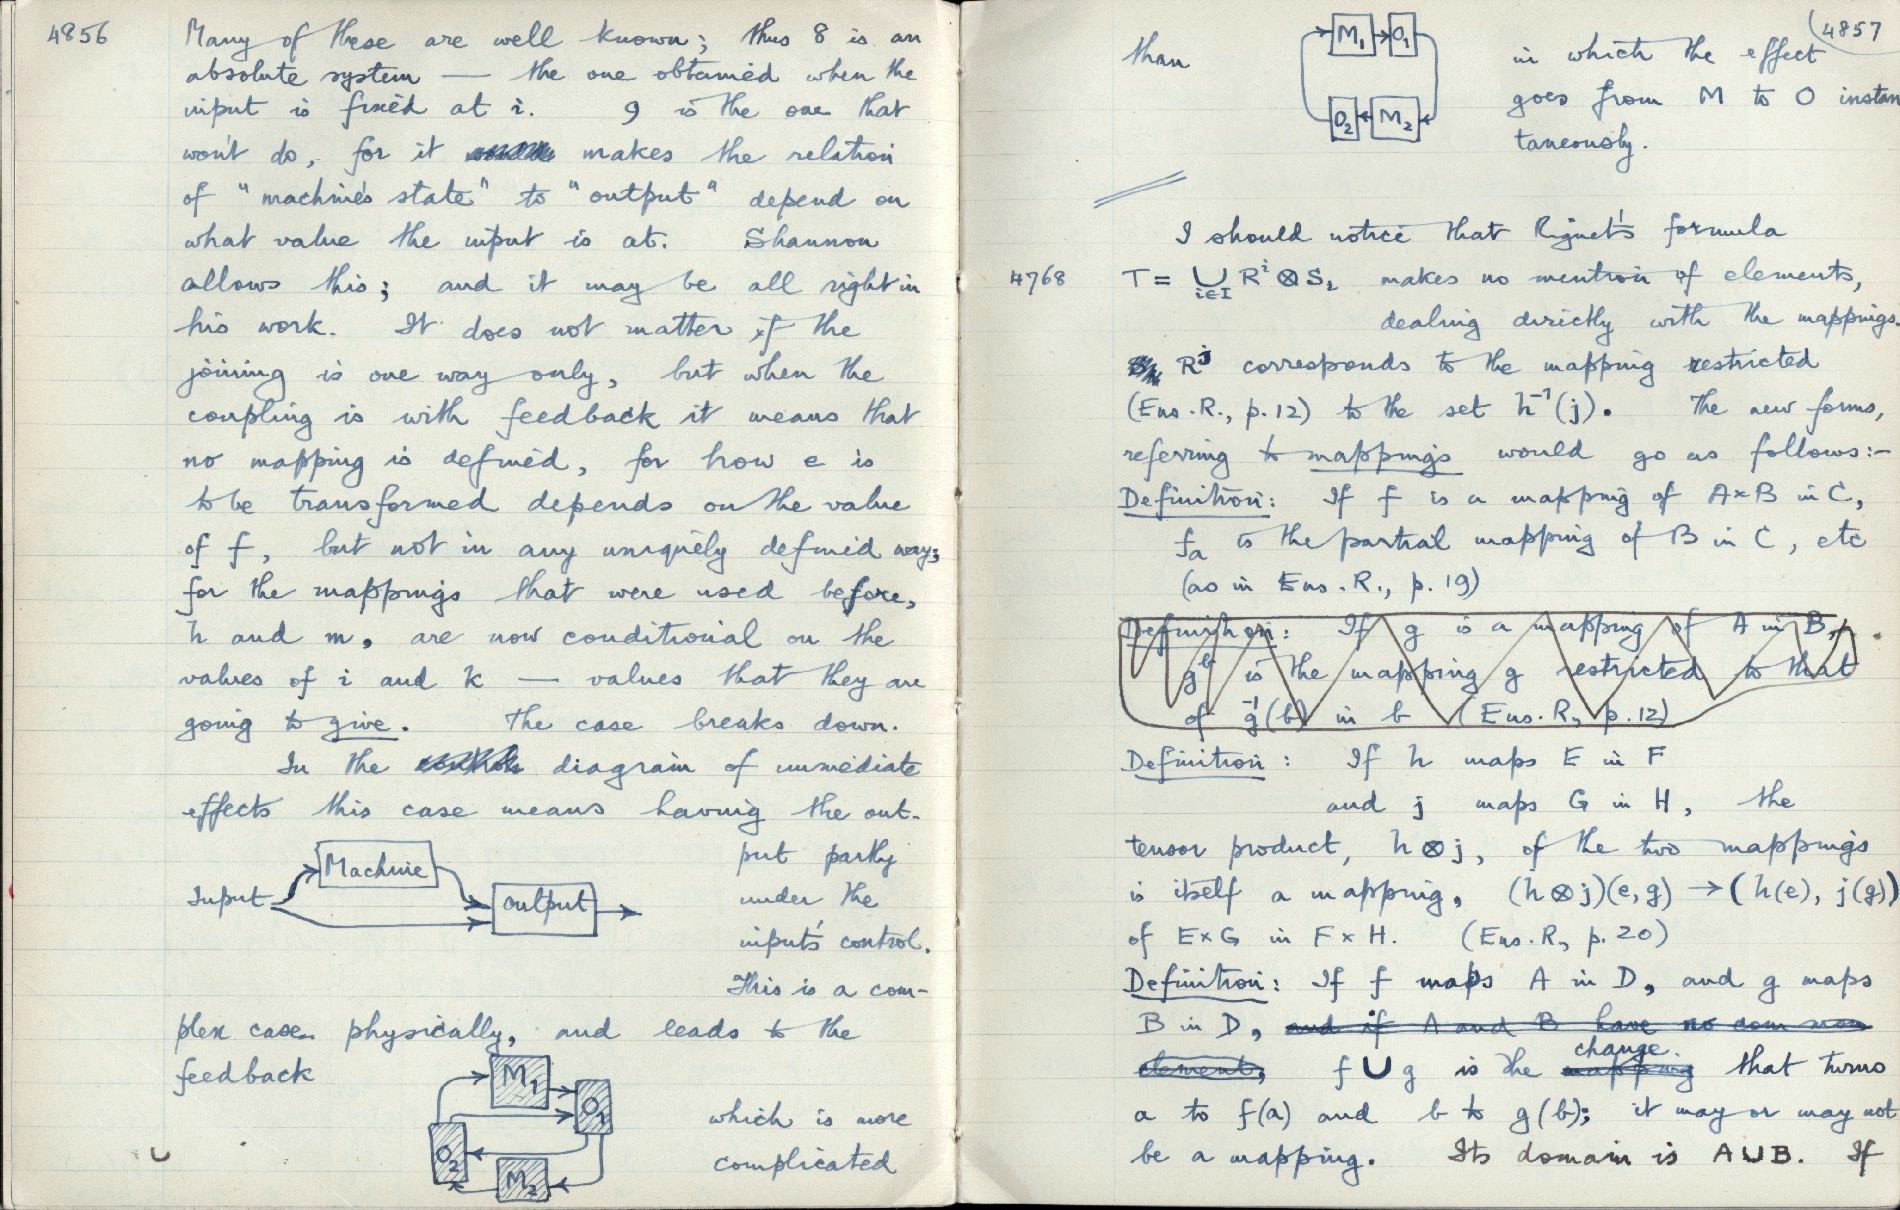 4856
Many of these are well known; thus 8 is an
absolute system — the one obtained when the
input is fixed at i. 9 is the one that
won't do, for it makes the relation
of "machine's state" to "output" depend on
what value the input is at. Shannon
allows this; and it may be all right in
his work. It does not matter if the
joining is one way only, but when the
coupling is with feedback it means that
no mapping is defined, for how e is
to be transformed depends on the value
of f, but not in any uniquely defined way;
for the mappings that were used before,
h and m, are now conditional on the
values of i and k — values that they are
going to give. The case breaks down.
In the diagram of immediate
effects this case means having the out-
put partly
under the
input's control.
This is a com-
Input
Machine
output
plex case physically, and leads to the
feedback
M1
O1
O2
M2
which is more
complicated
4857
than
M1
O1
O2
M2
in which the effect
goes from M to O instan
taneously.
I should notice that Riguet's formula
4768
T = ∪ Rⁱ ⊗ Sᵢ makes no mention of elements,
i∈I
dealing directly with the mappings.
Rʲ corresponds to the mapping restricted
(Ens. R., p. 12) to the set h⁻¹(j). The new forms,
referring to mappings would go as follows:-
Definition: If f is a mapping of A×B in C,
fₐ is the partial mapping of B in C, etc
(as in Ens. R., p. 19)
Definition: If g is a mapping of A in B,
gᵇ is the mapping g restricted to that
of g⁻¹(b) in b (Ens. R, p. 12)
Definition: If h maps E in F
and j maps G in H, the
tensor product, h⊗j, of the two mappings
is itself a mapping, (h⊗j)(e,g) → (h(e), j(g))
of E×G in F×H. (Ens. R, p. 20)
Definition: If f maps A in D, and g maps
B in D, and if A and B have no common
element, f∪g is the mapping change that turns
a to f(a) and b to g(b); it may or may not
be a mapping. Its domain is A∪B. If